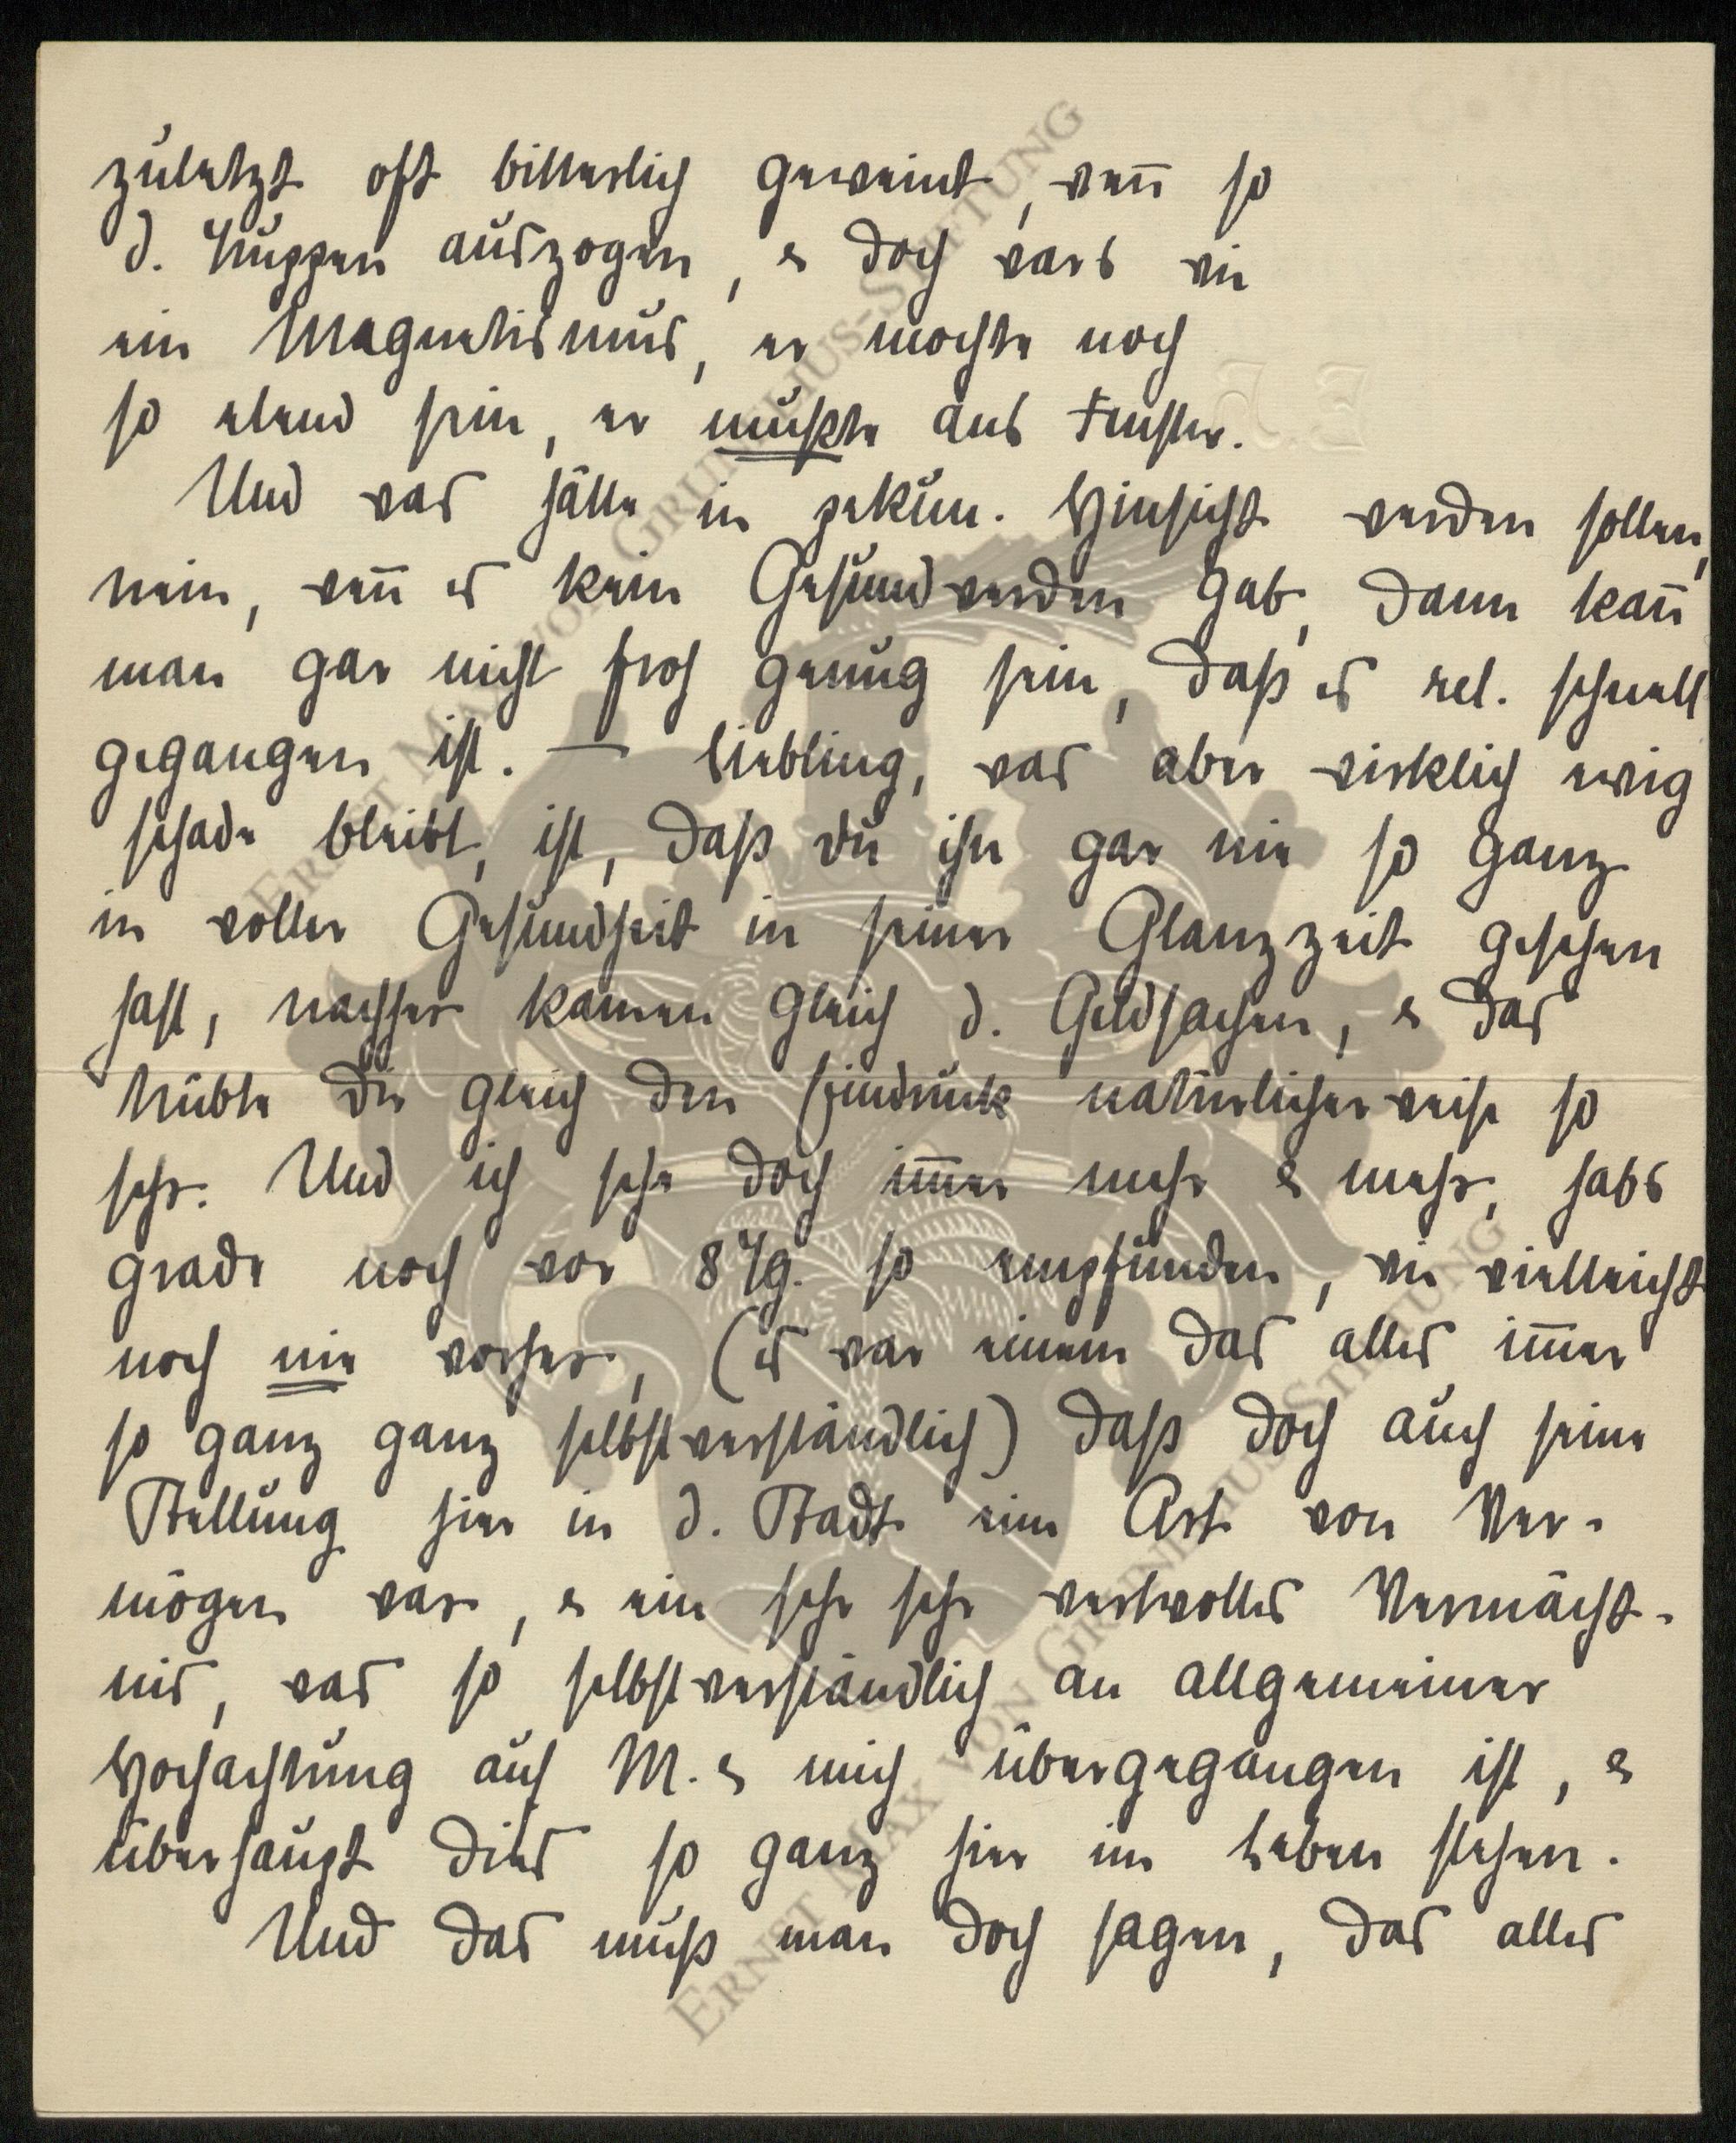 zuletzt oft bitterlich geweint, wenn so
d. Truppen auszogen, & doch wars wie
ein Magnetismus, er mochte noch
so elend sein, er mußte ans Fenster.
Und was hätte in pekün. Hinsicht werden sollen,
nein, wenn es kein Gesundwerden gab, dann kann
man gar nicht froh genug sein, daß es rel. schnell
gegangen ist. — Liebling, was aber wirklich ewig
schade bleibt, ist, daß Du ihn gar nie so ganz
in voller Gesundheit in seiner Glanzzeit gesehen
hast, nachher kamen gleich d. Geldsachen, & das
trübte Dir gleich den Eindruck natürlicherweise so
sehr. Und ich sehe doch immer mehr & mehr, habs
grade noch vor 8 Tg. so empfunden, wie vielleicht
noch nie vorher, (es war einem das alles immer
so ganz ganz selbstverständlich) daß doch auch seine
Stellung hier in d. Stadt eine Art von Ver-
mögen war, & ein sehr sehr wertvolles Vermächt-
nis, was so selbstverständlich an allgemeiner
Hochachtung auf M. & mich übergegangen ist, &
überhaupt dies so ganz hier im Leben stehen.
Und das muß man doch sagen, das alles
ERNST MAX VON GRUNELIUS-STIFTUNG
ERNST MAX VON GRUNELIUS-STIFTUNG